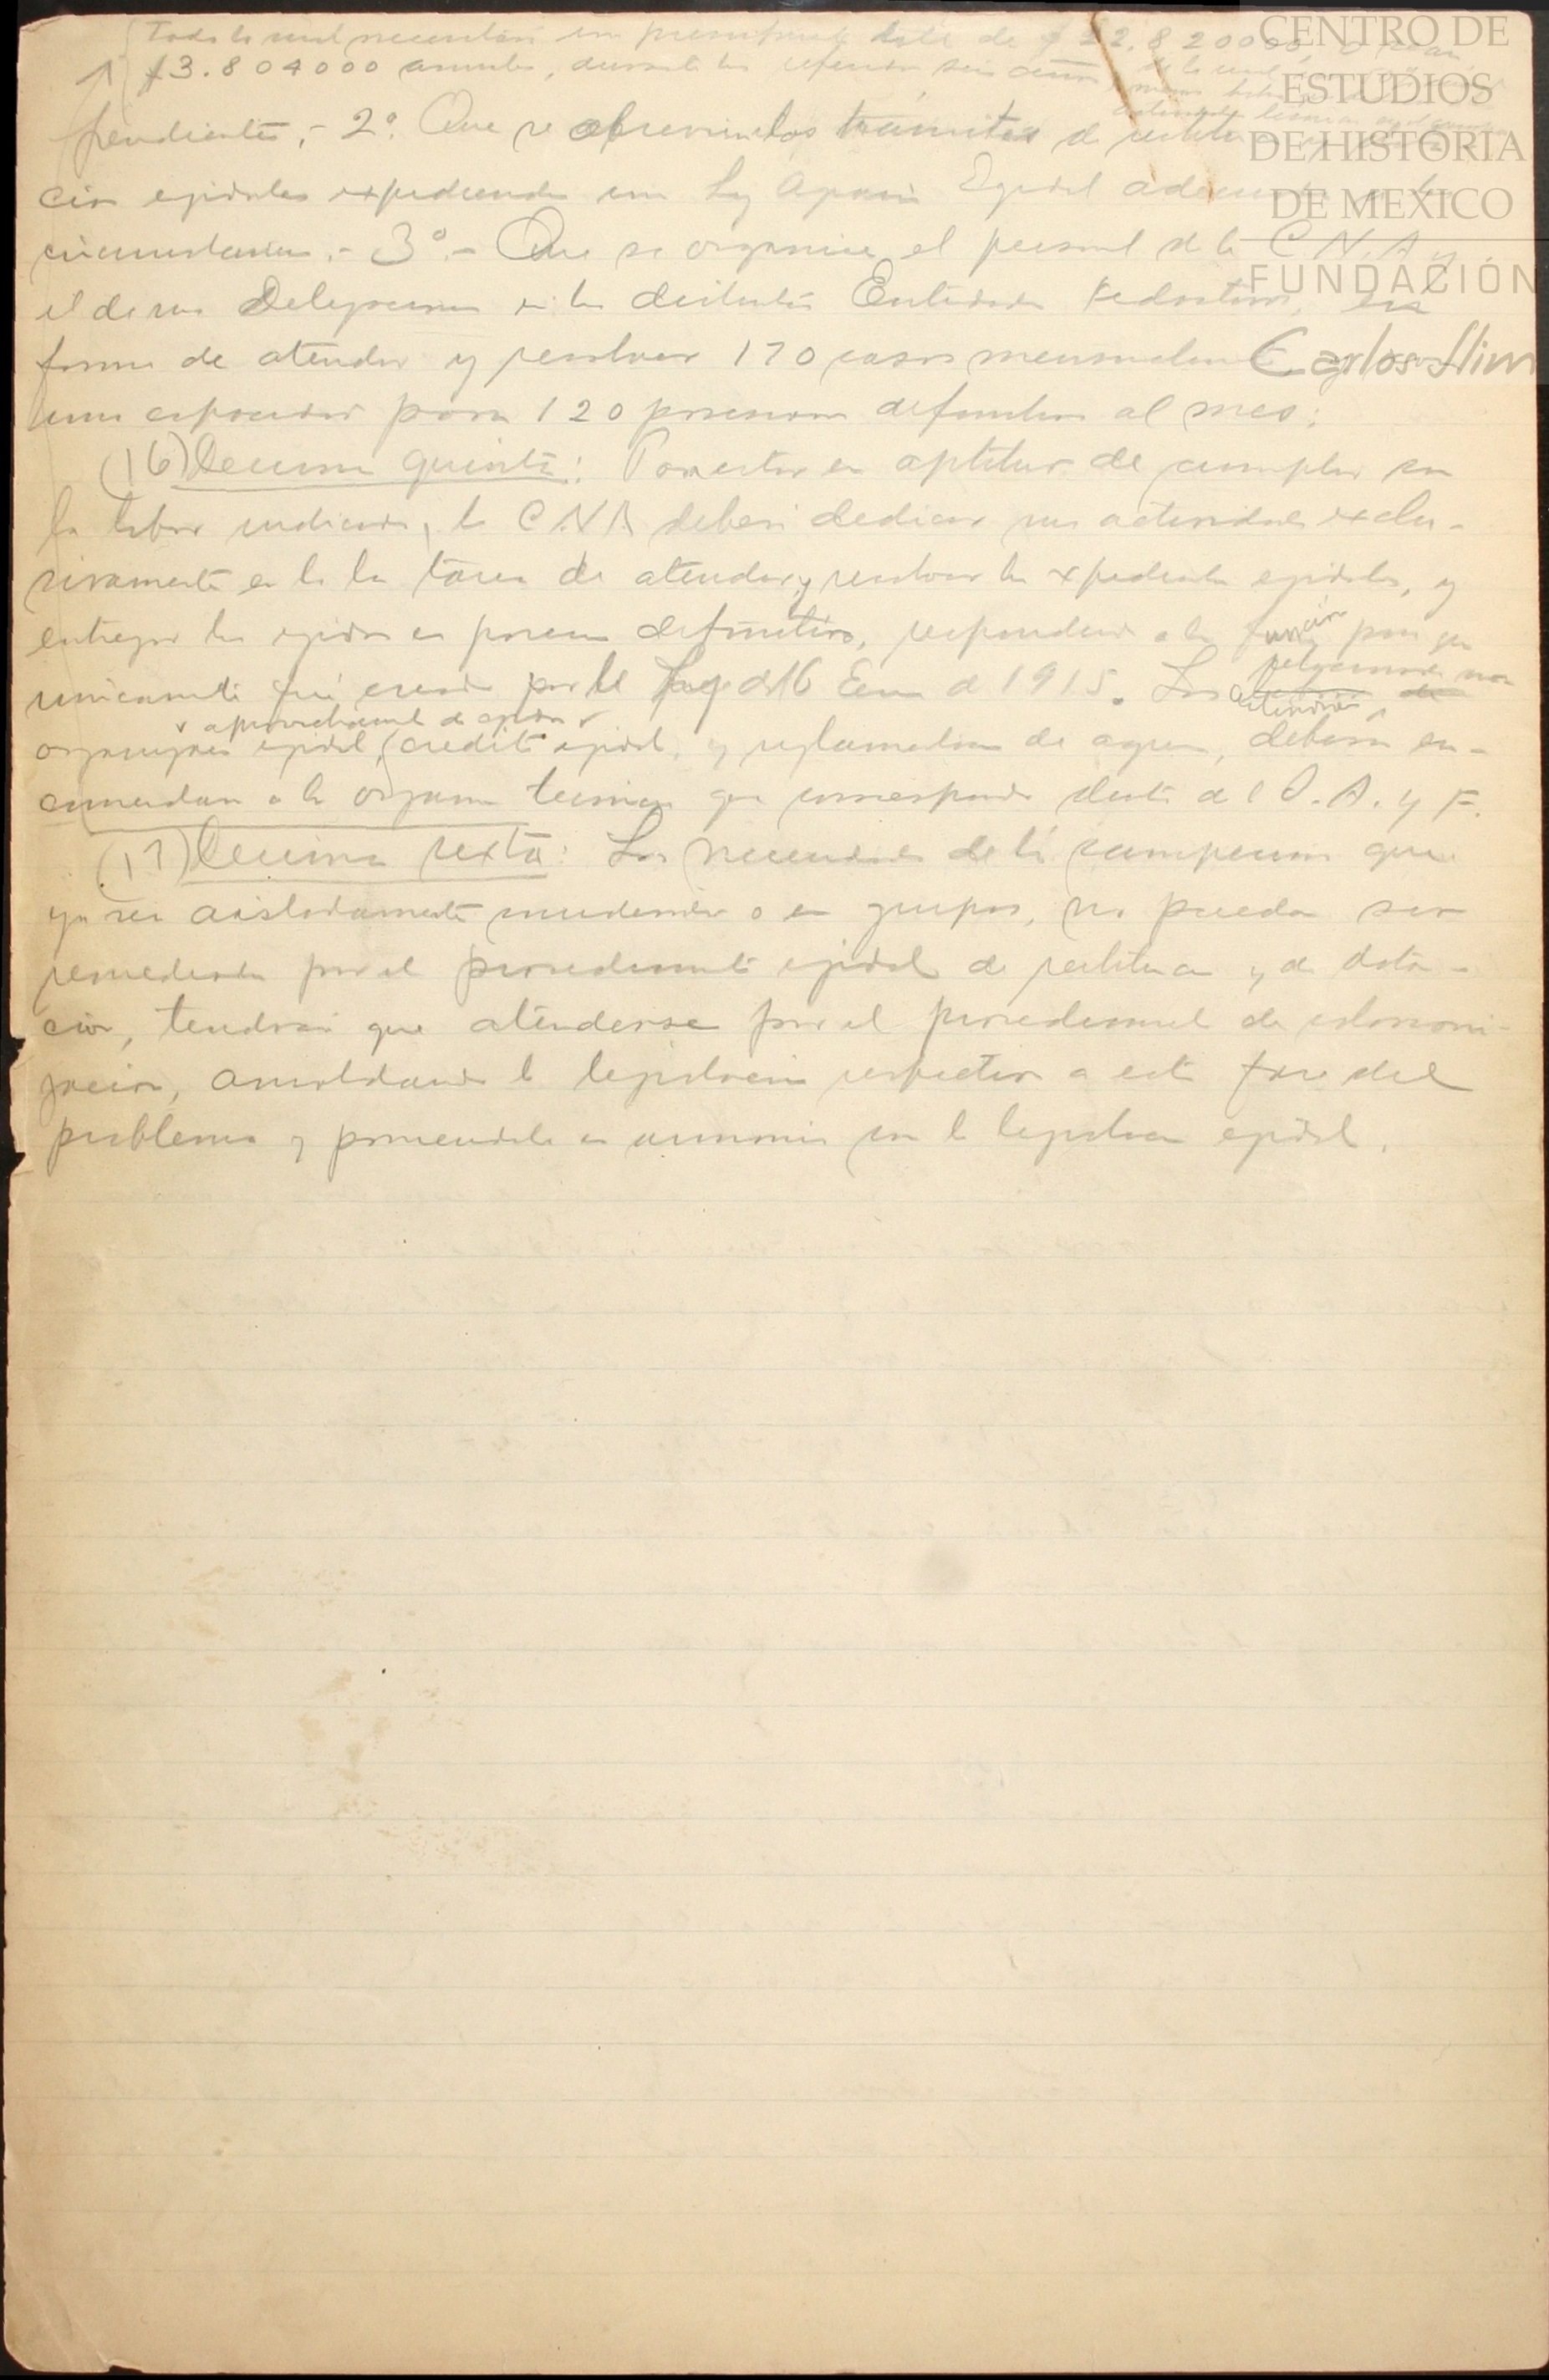 Todo lo cual necesitará un presupuesto total de $ 22.820000, o sean
$3.804000 anuales, durante los referidos seis años
pendientes, - 2º. Que se abrevien los trámites de
ción ejidales expidiendo una Ley Agraria Ejidal adecuada a las
circunstancias. - 3º. - Que se organice el personal de la C.N.A. y
el de sus Delegaciones en las distintas Entidades Federativas, en
forma de atender y resolver 170 casos mensualmente
una capacidad para 120 posesiones definitivas al mes;
(16) Decima quinta: Para estar en aptitud de cumplir con
la labor indicada, la C.N.A deberá dedicar sus actividades exclu-
sivamente a la la tarea de atender y resolver los expedientes ejidales, y
entregar los ejidos en posesion definitiva, respondiendo a la función para que
unicamente fué creada por la Ley del 6 Enero de 1915. Las
aprovechamiento de ejidos
ejidal, credito ejidal, y reglamentacion de aguas, deberá en-
comendarse a los organos tecnicos que corresponda dentro de la S. A. y F.
(17) Decima sexta: Las necesidades de los campesinos que
ya sea aisladamente considerados o en grupos, no puedan ser
remediadas por el procedimiento ejidal de restitucion y de dota-
ción, tendrán que atenderse por el procedimiento de coloni-
zación, amoldando la legislación respectiva a esta fase del
problema y poniendola en armonia con la legislacion ejidal.
CENTRO DE
ESTUDIOS
DE HISTORIA
DE MEXICO
FUNDACIÓN
Carlos Slim